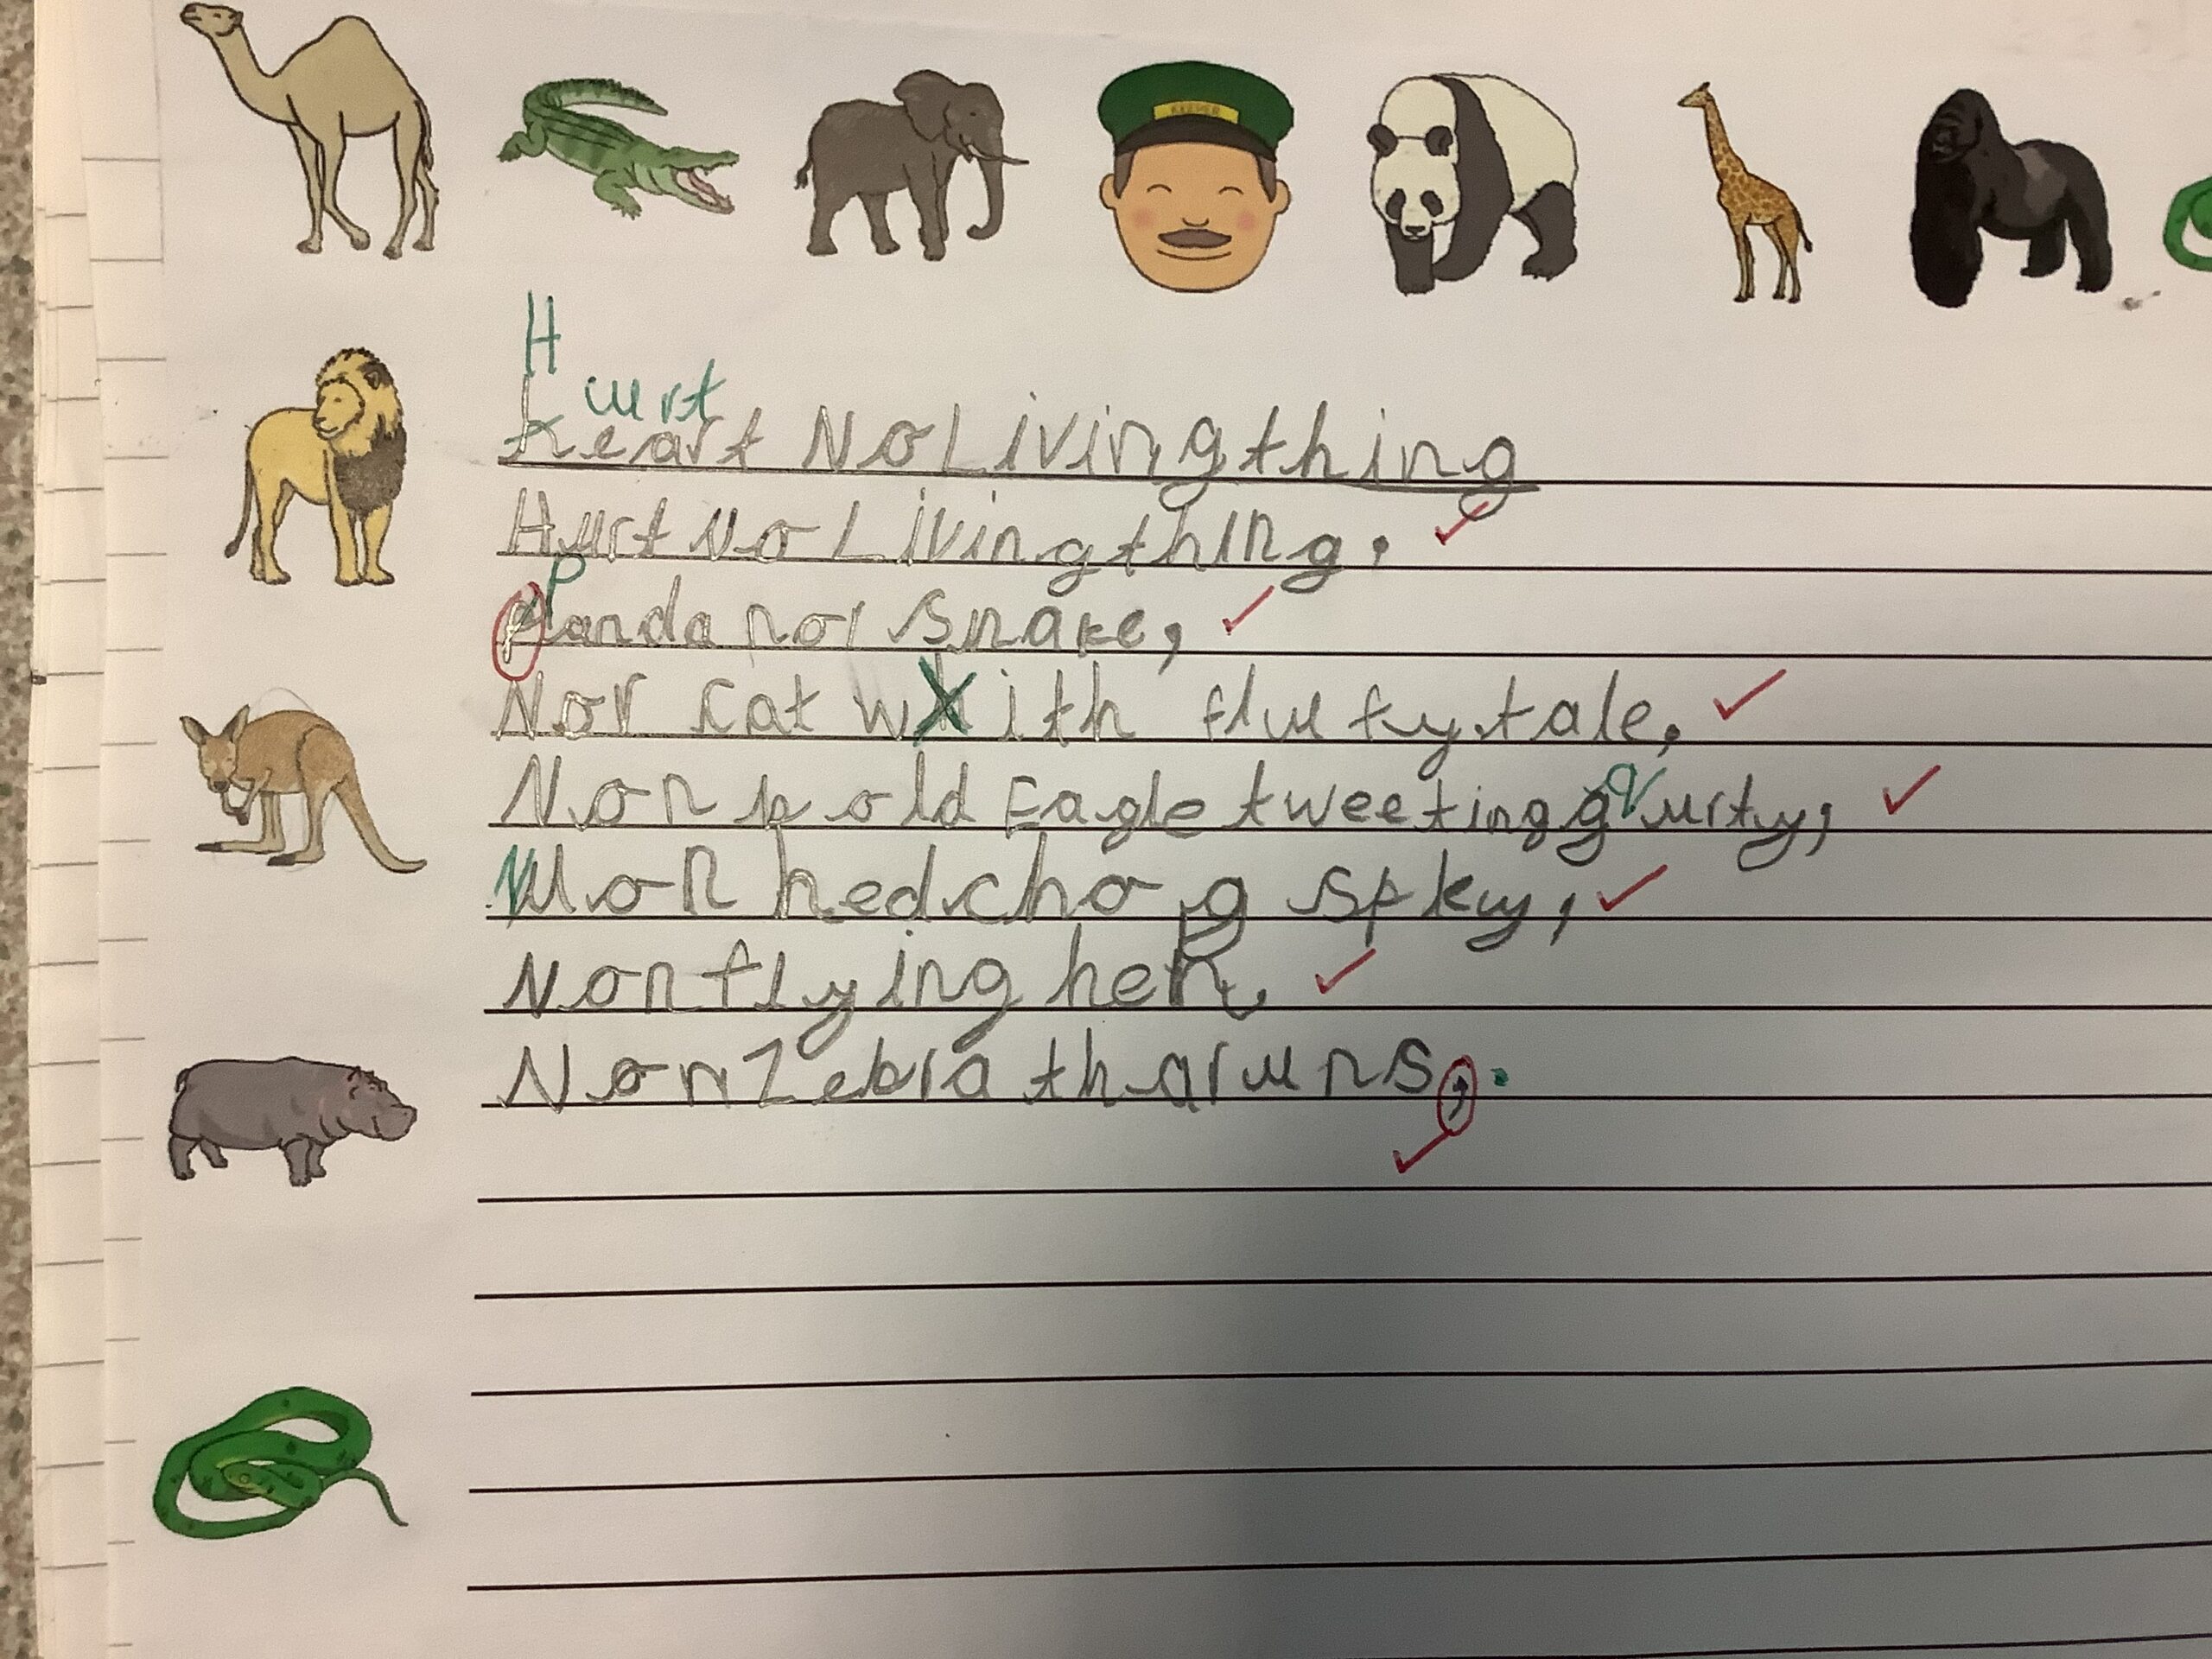 KEEPER
H
urt
heart No Living thing
Hurt No Living thing.
P
Panda nor snake,
Nor cat with flufy tale,
Nor bold Eagle tweeting qurty,
Nor hedchog spky,
Nor flying hen,
Nor Zebra tha runs,.